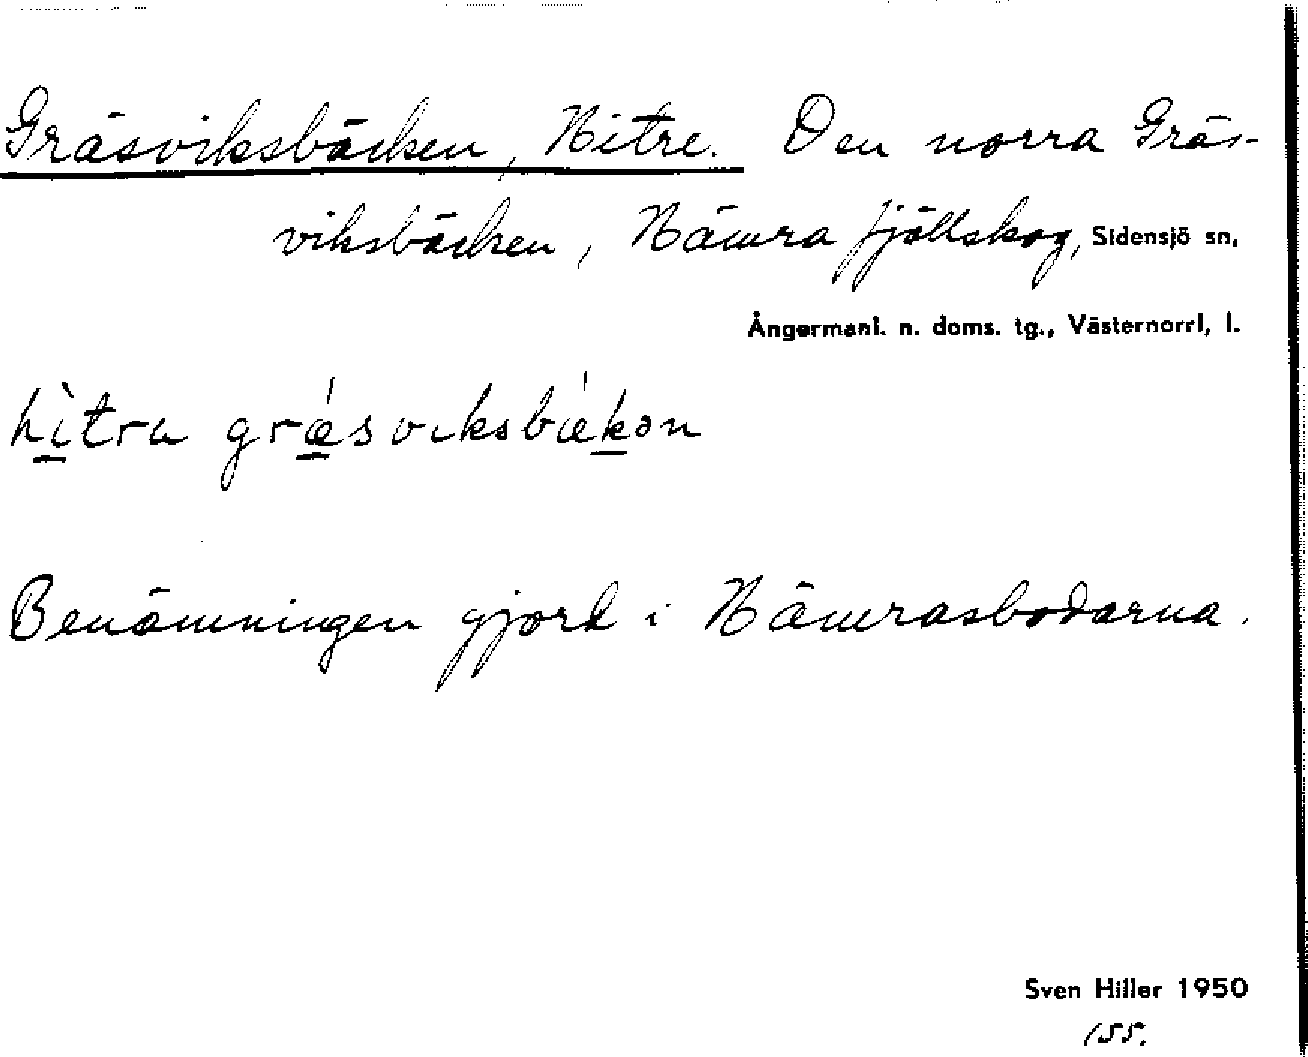 Gräsviksbäcken, Hitre. Den norra Gräs-
viksbäcken, Hämra fjällskog, Sidensjö sn,
Ångermanl. n. doms. tg., Västernorrl, l.
hìtra græ̀sviksbækən
Benämningen gjord i Hämrasbodarna.
Sven Hiller 1950
155.